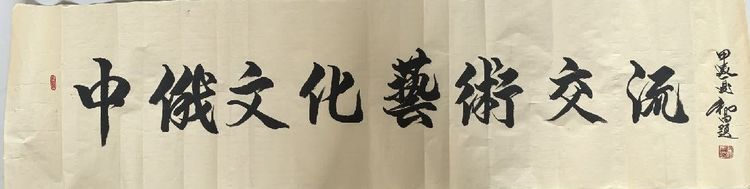 中俄文化藝術交流
甲辰夏